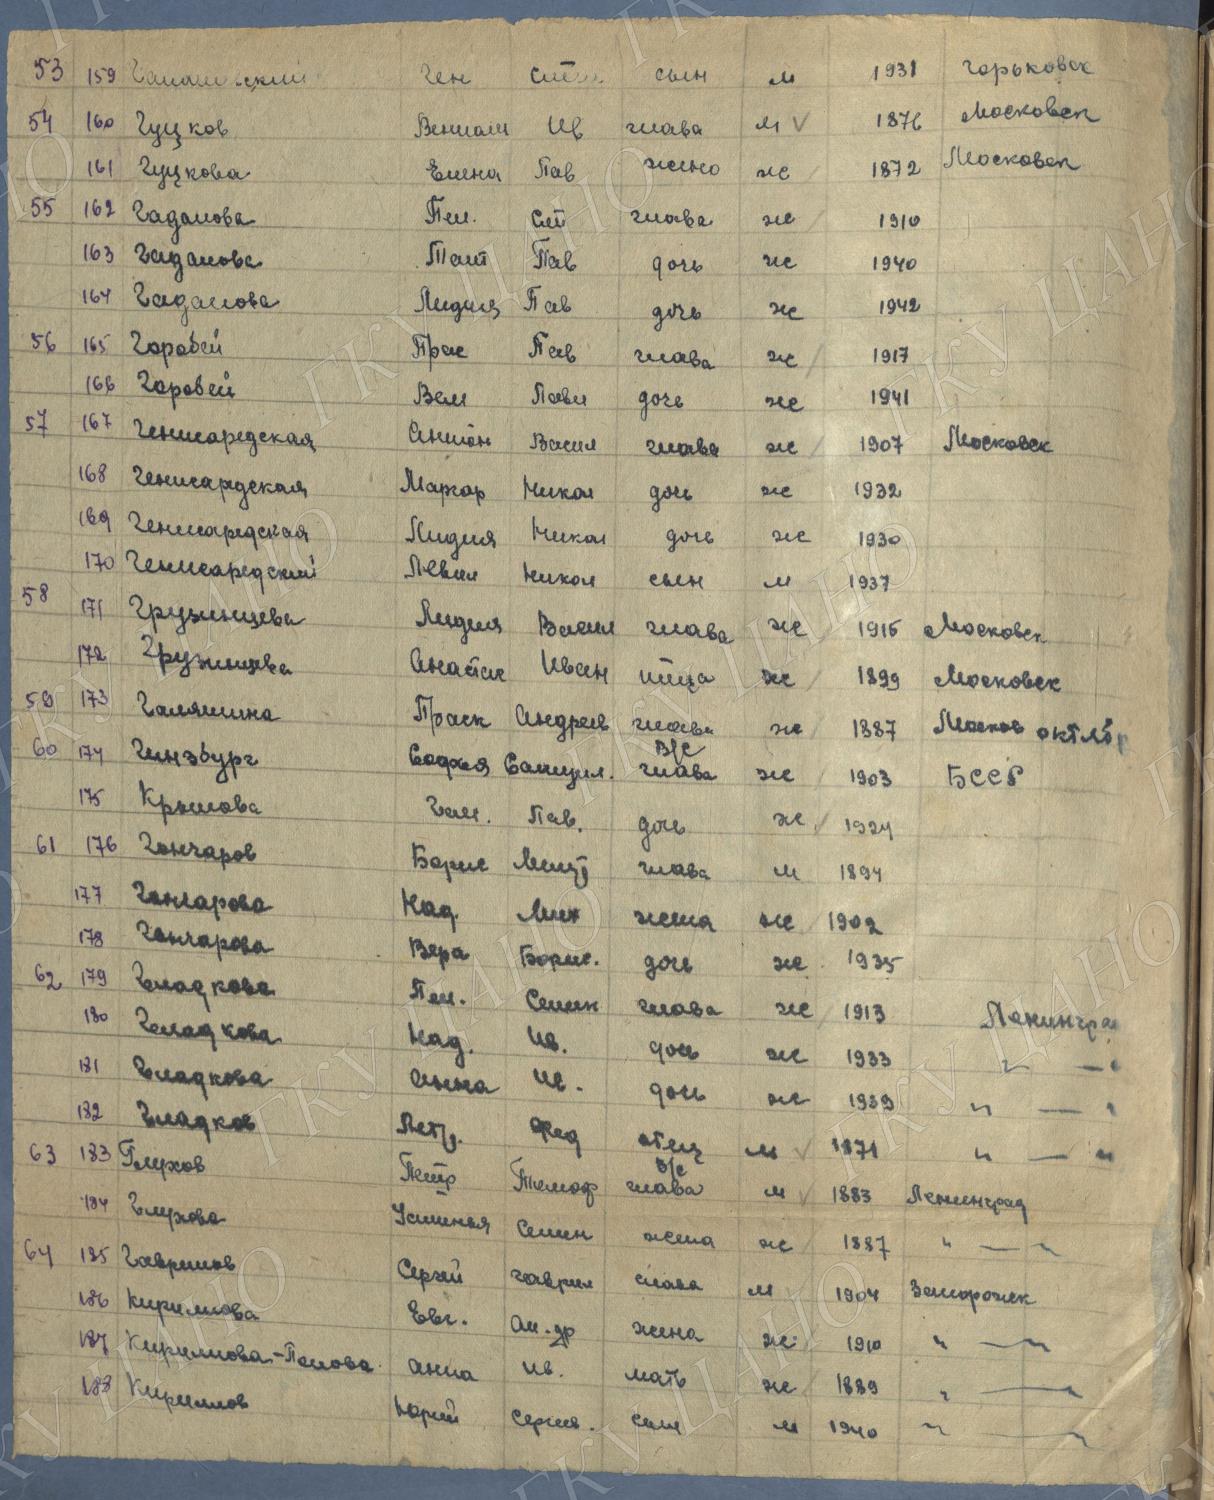 53 159 Ген сын м 1931 Горьковск
54 160 Гуцков Вениам Ив глава м 1876 Московск
161 Гуцкова Елена Пав жена ж 1872 Московск
55 162 Гадалова Пел. глава ж 1910
163 Гадалова Пав дочь ж 1940
164 Гадалова Лидия Пав дочь ж 1942
56 165 Горовей Прас Пав глава ж 1917
166 Горовей Вал Павл дочь ж 1941
57 167 Генисаредская Антон Васил глава ж 1907 Московск
168 Генисаредская Маргар Никол дочь ж 1932
169 Генисаредская Лидия Никол дочь ж 1930
170 Генисаредский Никол сын м 1937
58 171 Грузинцева Лидия Васил глава ж 1915 Московск
172 Грузинцева Анастас Иван ж 1899 Московск
59 173 Галямина Праск Андреев глава ж 1887 Москов октябр
60 174 Гинзбург Софья Самуил. глава в/с ж 1903 БССР
175 Крылова Гал. Пав. дочь ж 1924
61 176 Гончаров Борис глава м 1894
177 Гончарова Над. Мих жена ж 1902
178 Гончарова Вера Борис. дочь ж 1935
62 179 Гладкова Пел. Семен глава ж 1913 Ленинград
180 Гладкова Над. Ив. дочь ж 1933 " — "
181 Гладкова Анна Ив. дочь ж 1939 " — "
182 Гладков Петр. Фед отец м 1871 " — "
63 183 Глухов Петр Тимоф глава в/с м 1883 Ленинград
184 Глухова Устинья Семен жена ж 1887 " — "
64 185 Гаврилов Сергей Гаврил глава м 1904 Запорожск
186 Кириллова Евг. Ал-др жена ж 1910 " — "
187 Кириллова-Попова Анна Ив. мать ж 1889 " — "
188 Кириллов Юрий Сергеев. сын м 1940 " — "
ГКУ ЦАНО